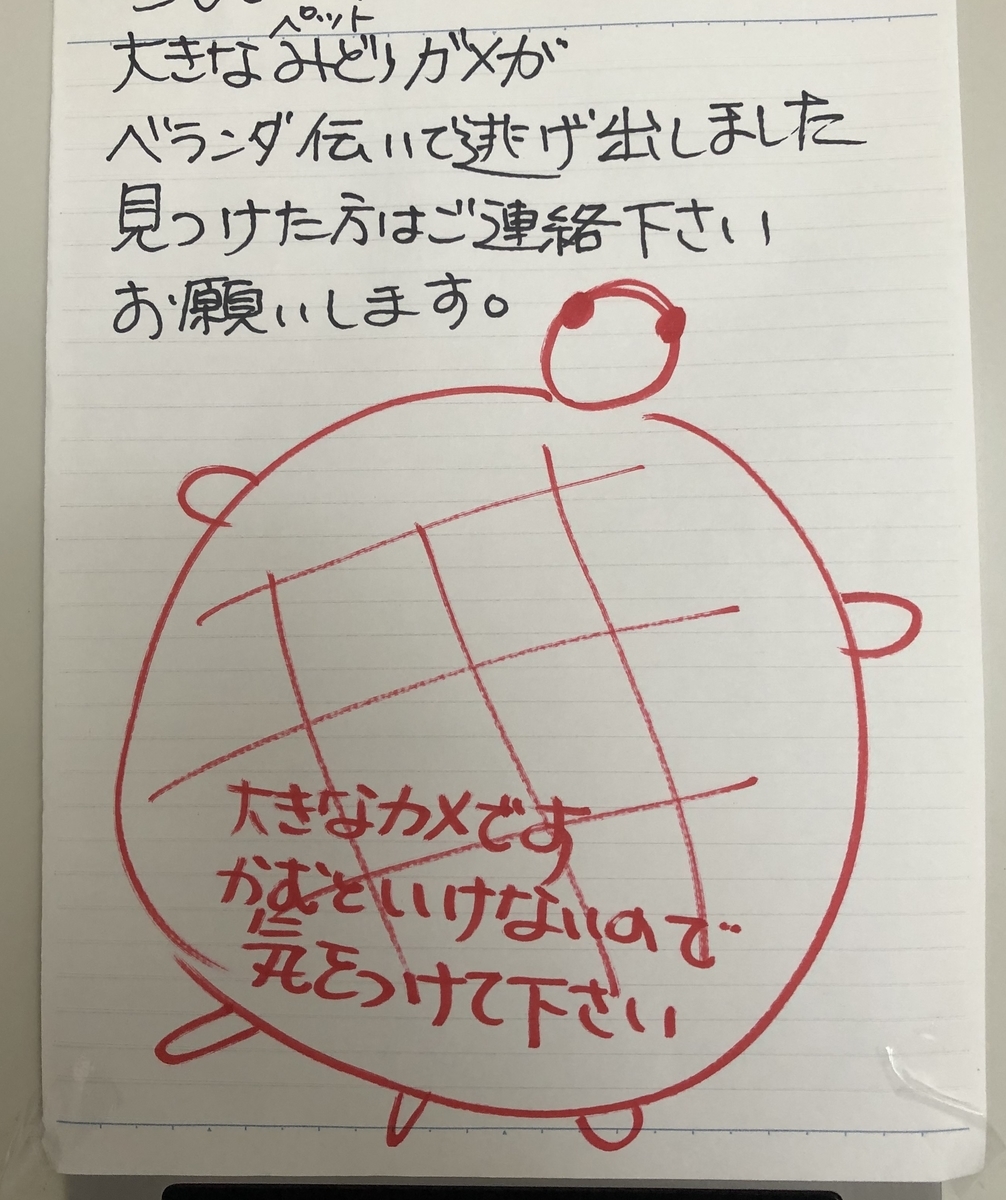 ペット
大きなみどりガメが
ベランダ伝いで逃げ出しました
見つけた方はご連絡下さい
お願いします。
大きなカメです
かむといけないので
気をつけて下さい